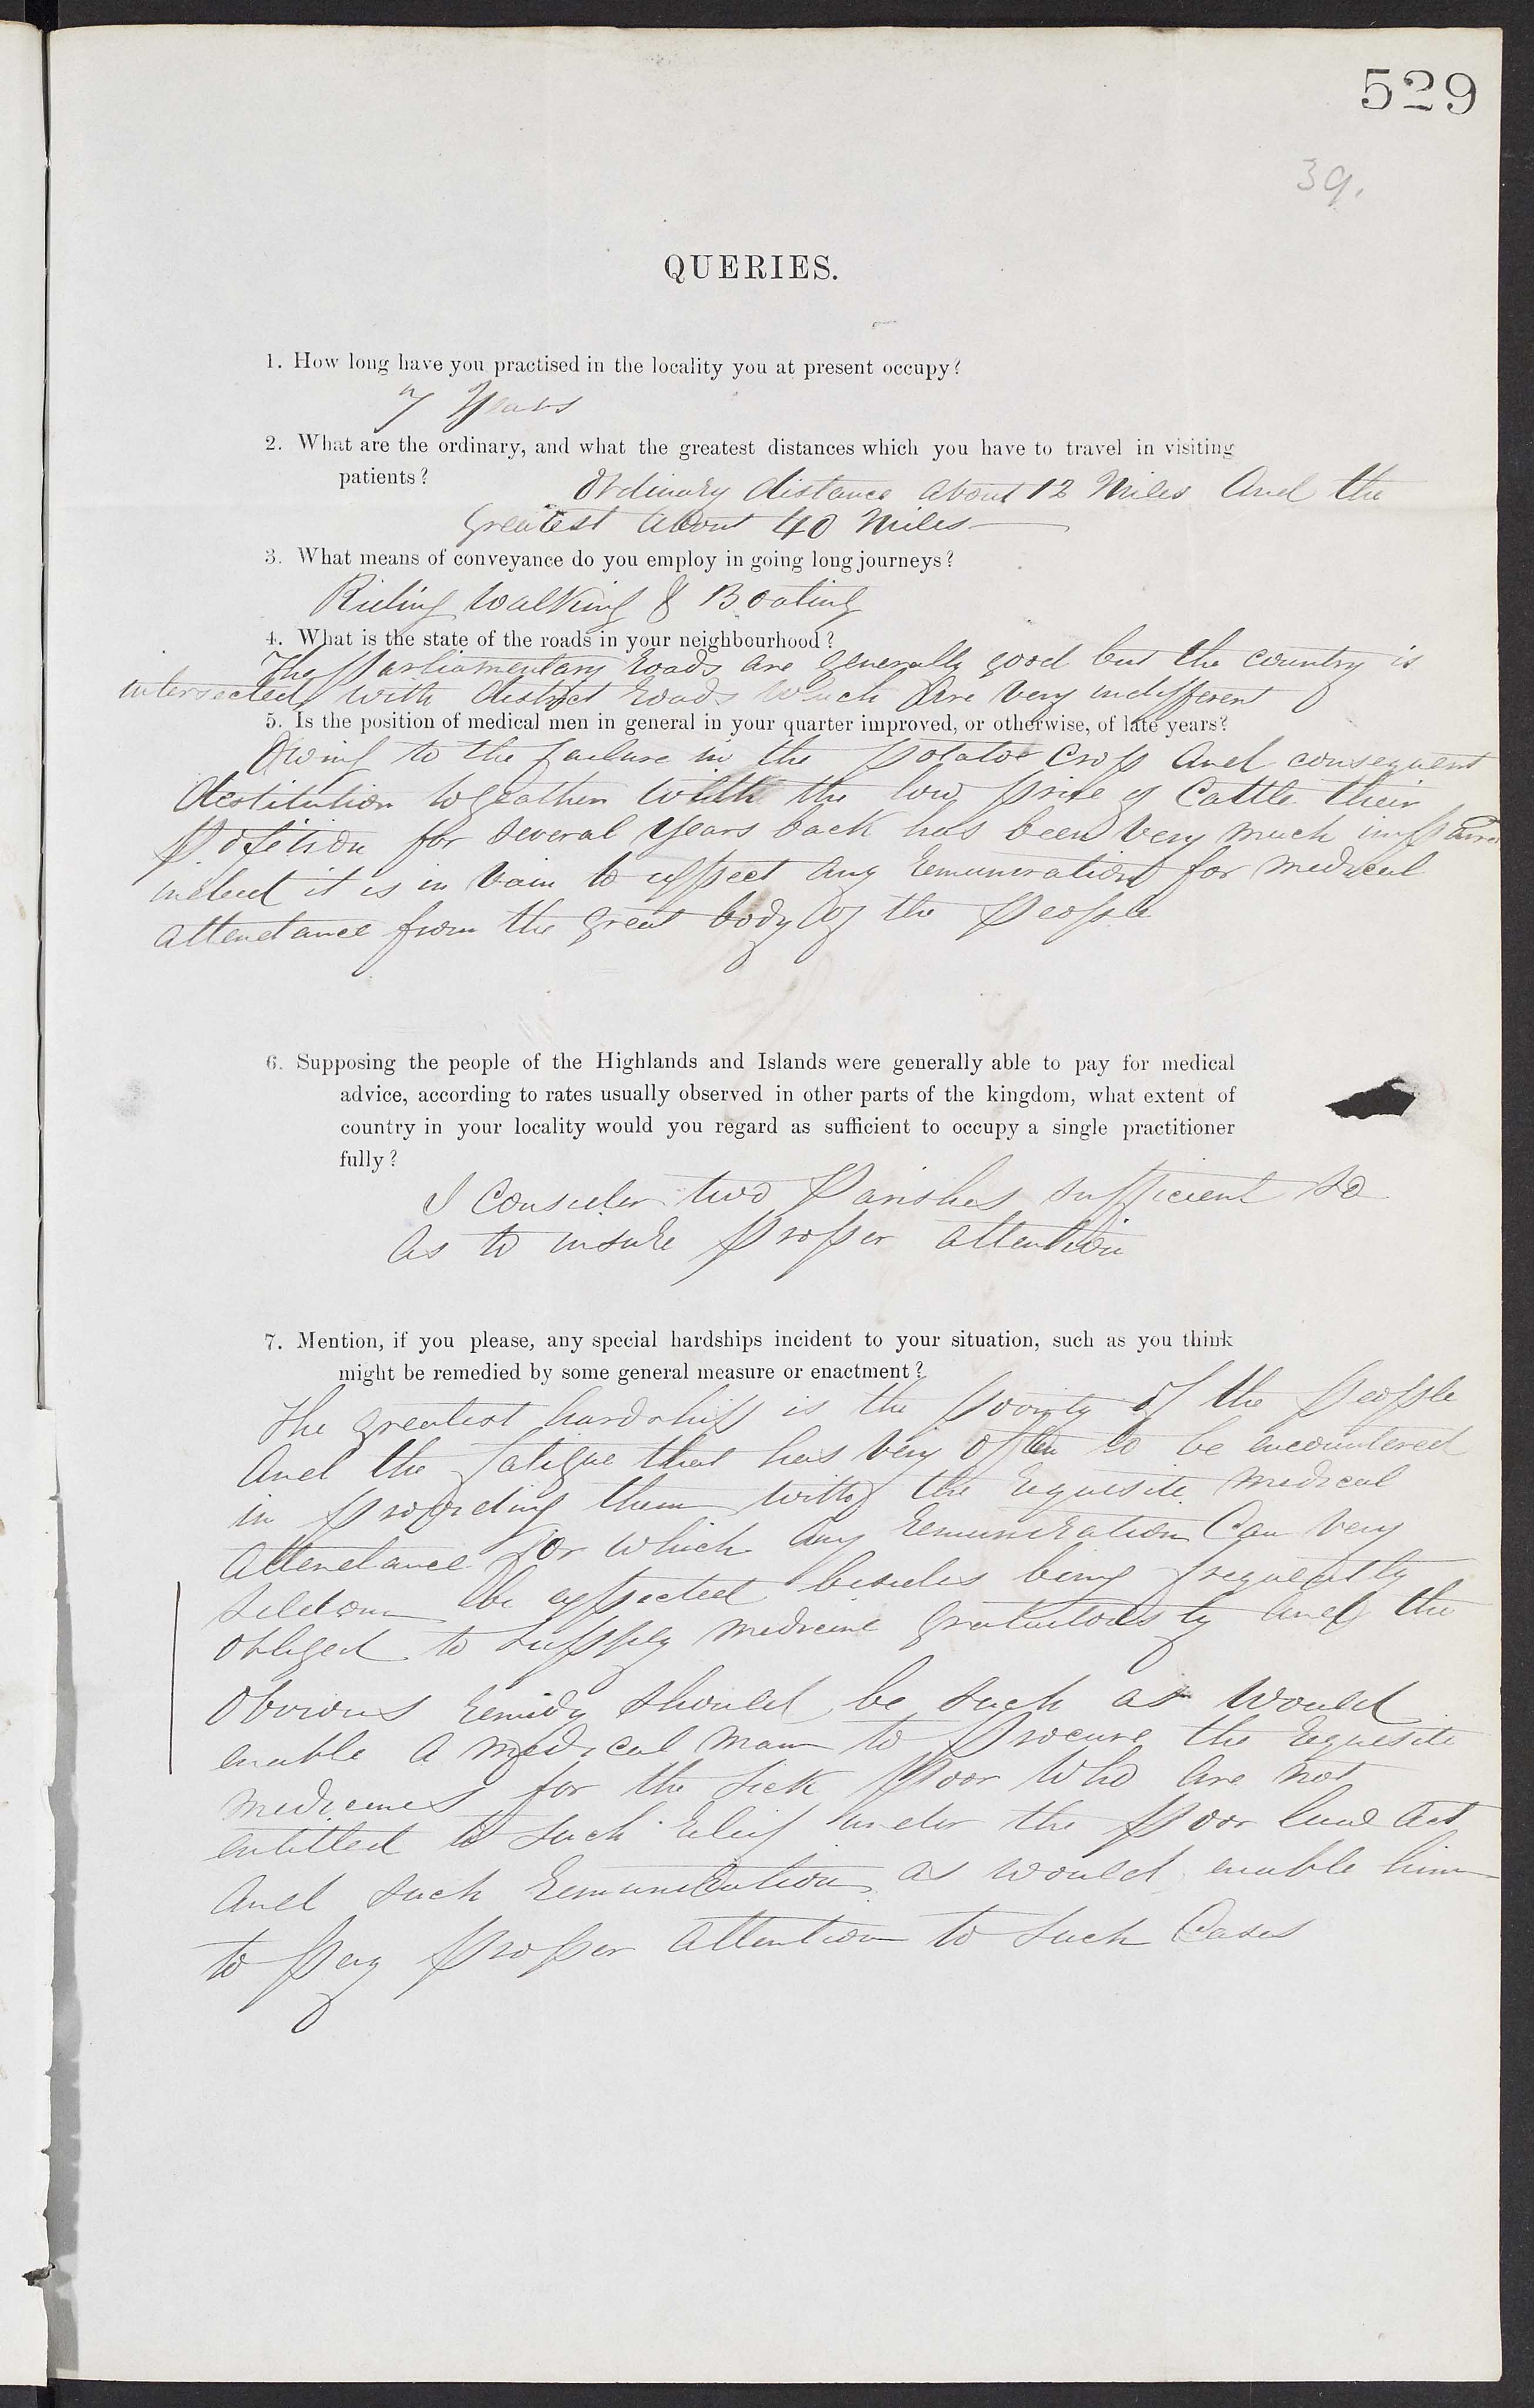 529
39.
QUERIES.
1. How long have you practised in the locality you at present occupy?
7 Years
2. What are the ordinary, and what the greatest distances which you have to travel in visiting
patients?
Ordinary distance about 12 Miles And the
greatest about 40 Miles
3. What means of conveyance do you employ in going long journeys?
Riding Walking & Boating
4. What is the state of the roads in your neighbourhood?
The Parliamentary Roads are generally good but the country is
intersected with district Roads Which Are Very indifferent
5. Is the position of medical men in general in your quarter improved, or otherwise, of late years?
Owing to the failure in the potatoe Crop And consequent
destitution togeather With the low price of Cattle their
Position for several Years back has been Very much impaired
indeed it is in Vain to expect Any remuneration for Medical
attendance from the great body of the People
6. Supposing the people of the Highlands and Islands were generally able to pay for medical
advice, according to rates usually observed in other parts of the kingdom, what extent of
country in your locality would you regard as sufficient to occupy a single practitioner
fully?
I Consider two Parishes sufficient so
As to insure Proper attention
7. Mention, if you please, any special hardships incident to your situation, such as you think
might be remedied by some general measure or enactment?
The greatest hardship is the poverty of the People
And the fatigue that has Very often to be encountered
in Providing them with the requisite Medical
Attendance for which Any remuneration Can Very
Seldom be expected besides being frequently
obliged to supply Medicine gratuitously And the
Obvious remidy should be such as Would
enable A Medical Man to Procure the requisite
Medicines for the sick Poor Who Are Not
entitled to such relief under the Poor law Act
And such remuneration as would enable him
to Pay Proper Attention to such Cases